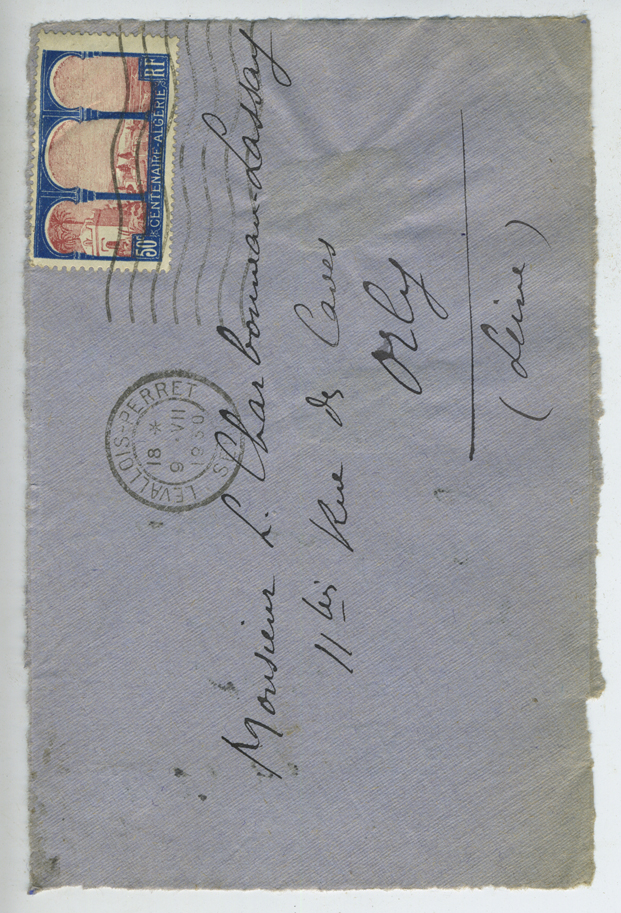 RF
CENTENAIRE-ALGÉRIE
50c
LEVALLOIS-PERRET
18 *
9 · VII
1930
Monsieur L. Charbonneau-Lassay
11 bis Rue des Caves
Orly
(Seine)